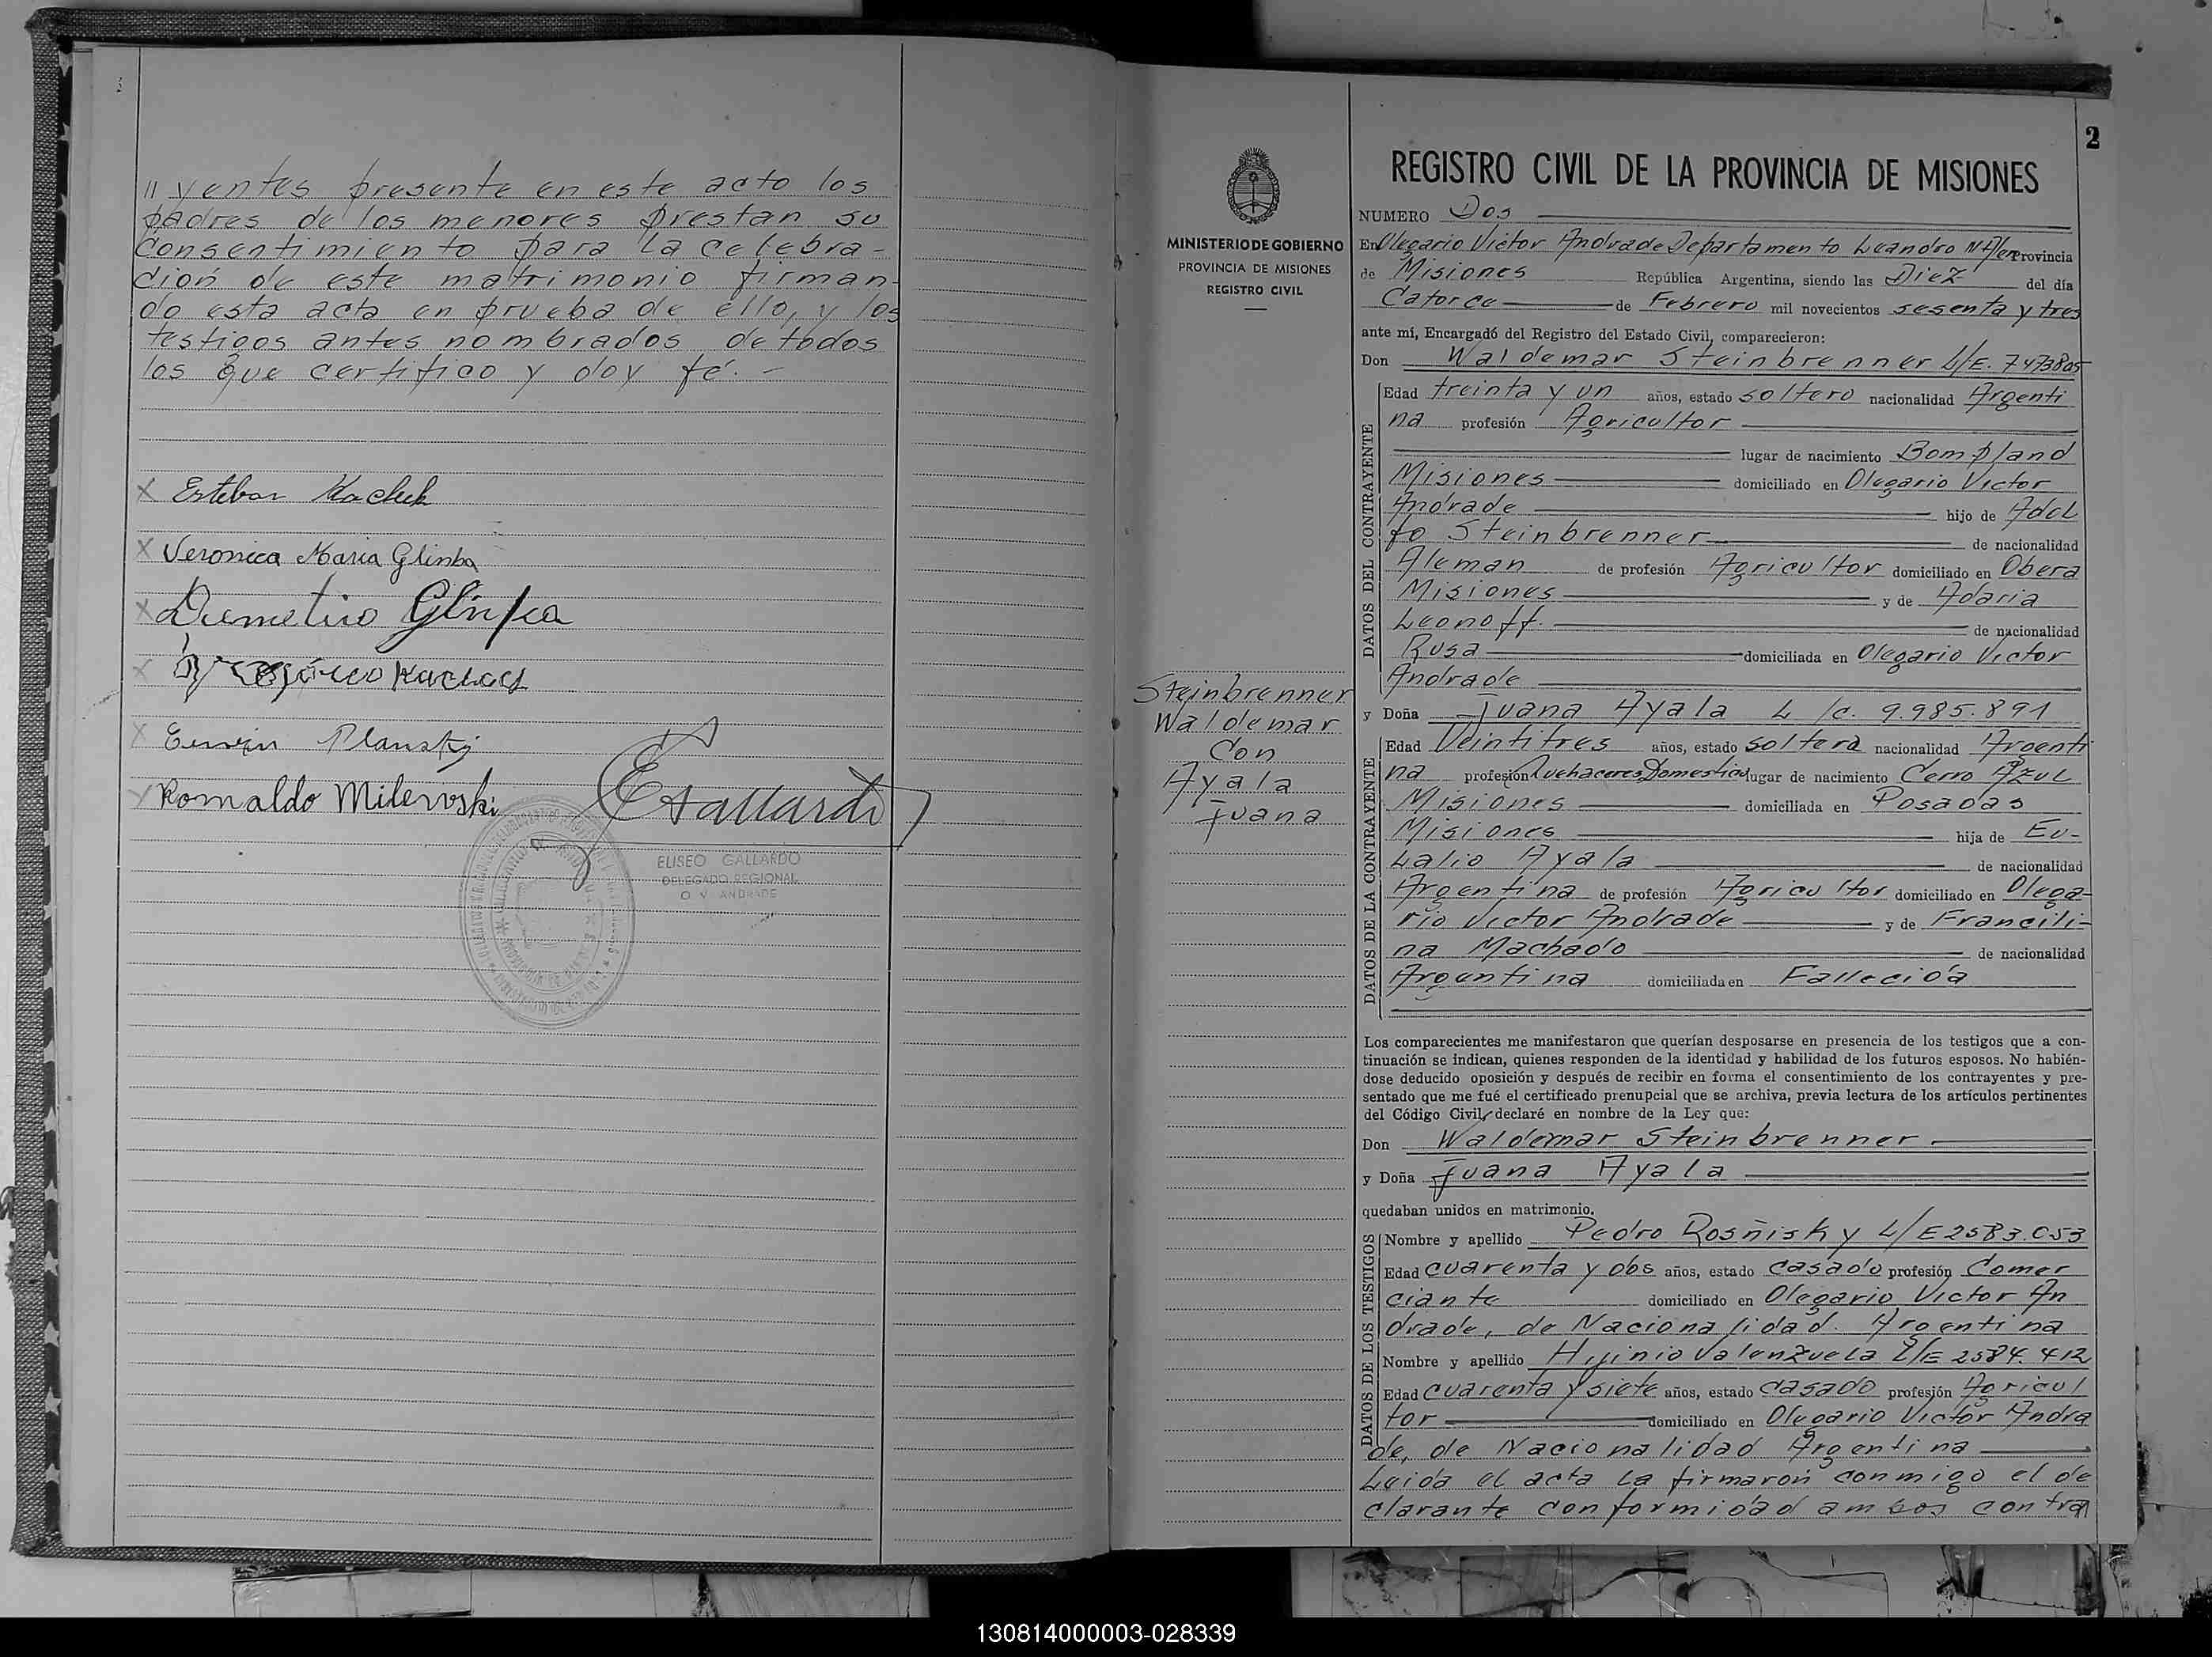 // yentes presente en este acto los
padres de los menores prestan su
consentimiento para la celebra-
ción de este matrimonio firman-
do esta acta en prueba de ello, y los
testigos antes nombrados de todos
los que certifico y doy fé. -
X Esteban Kachuk
X Veronica Maria Glinka
X Demetrio Glinka
X
X Erwin Plansky
X Romaldo Milewski
EGallardo
ELISEO GALLARDO
DELEGADO REGIONAL
O V ANDRADE
MINISTERIO DE GOBIERNO
PROVINCIA DE MISIONES
REGISTRO CIVIL
Steinbrenner
Waldemar
Con
Ayala
Juana
2
REGISTRO CIVIL DE LA PROVINCIA DE MISIONES
NUMERO Dos
En Olegario Victor Andrade Departamento Leandro N Alem Provincia
de Misiones República Argentina, siendo las Diez del día
Catorce de Febrero mil novecientos sesenta y tres
ante mí, Encargado del Registro del Estado Civil, comparecieron:
Don Waldemar Steinbrenner L/E. 7473805
DATOS DEL CONTRAYENTE
Edad treinta y un años, estado soltero nacionalidad Argenti
na profesión Agricultor
lugar de nacimiento Bompland
Misiones domiciliado en Olegario Victor
Andrade hijo de Adol
fo Steinbrenner de nacionalidad
Aleman de profesión Agricultor domiciliado en Obera
Misiones y de Adaria
Leonoff. de nacionalidad
Rusa domiciliada en Olegario Victor
Andrade
y Doña Juana Ayala L/c. 9.985.891
DATOS DE LA CONTRAYENTE
Edad Veintitres años, estado soltera nacionalidad Argenti
na profesión Quehaceres Domesticos lugar de nacimiento Cerro Azul
Misiones domiciliada en Posadas
Misiones hija de Eu-
lalio Ayala de nacionalidad
Argentina de profesión Agricultor domiciliado en Olega-
rio Victor Andrade y de Francili-
na Machado de nacionalidad
Argentina domiciliada en Fallecida
Los comparecientes me manifestaron que querían desposarse en presencia de los testigos que a con-
tinuación se indican, quienes responden de la identidad y habilidad de los futuros esposos. No habién-
dose deducido oposición y después de recibir en forma el consentimiento de los contrayentes y pre-
sentado que me fué el certificado prenupcial que se archiva, previa lectura de los artículos pertinentes
del Código Civil, declaré en nombre de la Ley que:
Don Waldemar Steinbrenner.
y Doña Juana Ayala
quedaban unidos en matrimonio.
DATOS DE LOS TESTIGOS
Nombre y apellido Pedro Rosñisky L/E 2583.053
Edad cuarenta y dos años, estado casado profesión Comer
ciante domiciliado en Olegario Victor An
drade, de Nacionalidad. Argentina
Nombre y apellido Hijinio Valenzuela L/E 2584.412
Edad cuarenta y siete años, estado casado profesión Agricul
tor domiciliado en Olegario Victor Andra
de, de Nacionalidad Argentina
Leida el acta la firmaron conmigo el de
clarante conformidad ambos contra
130814000003-028339